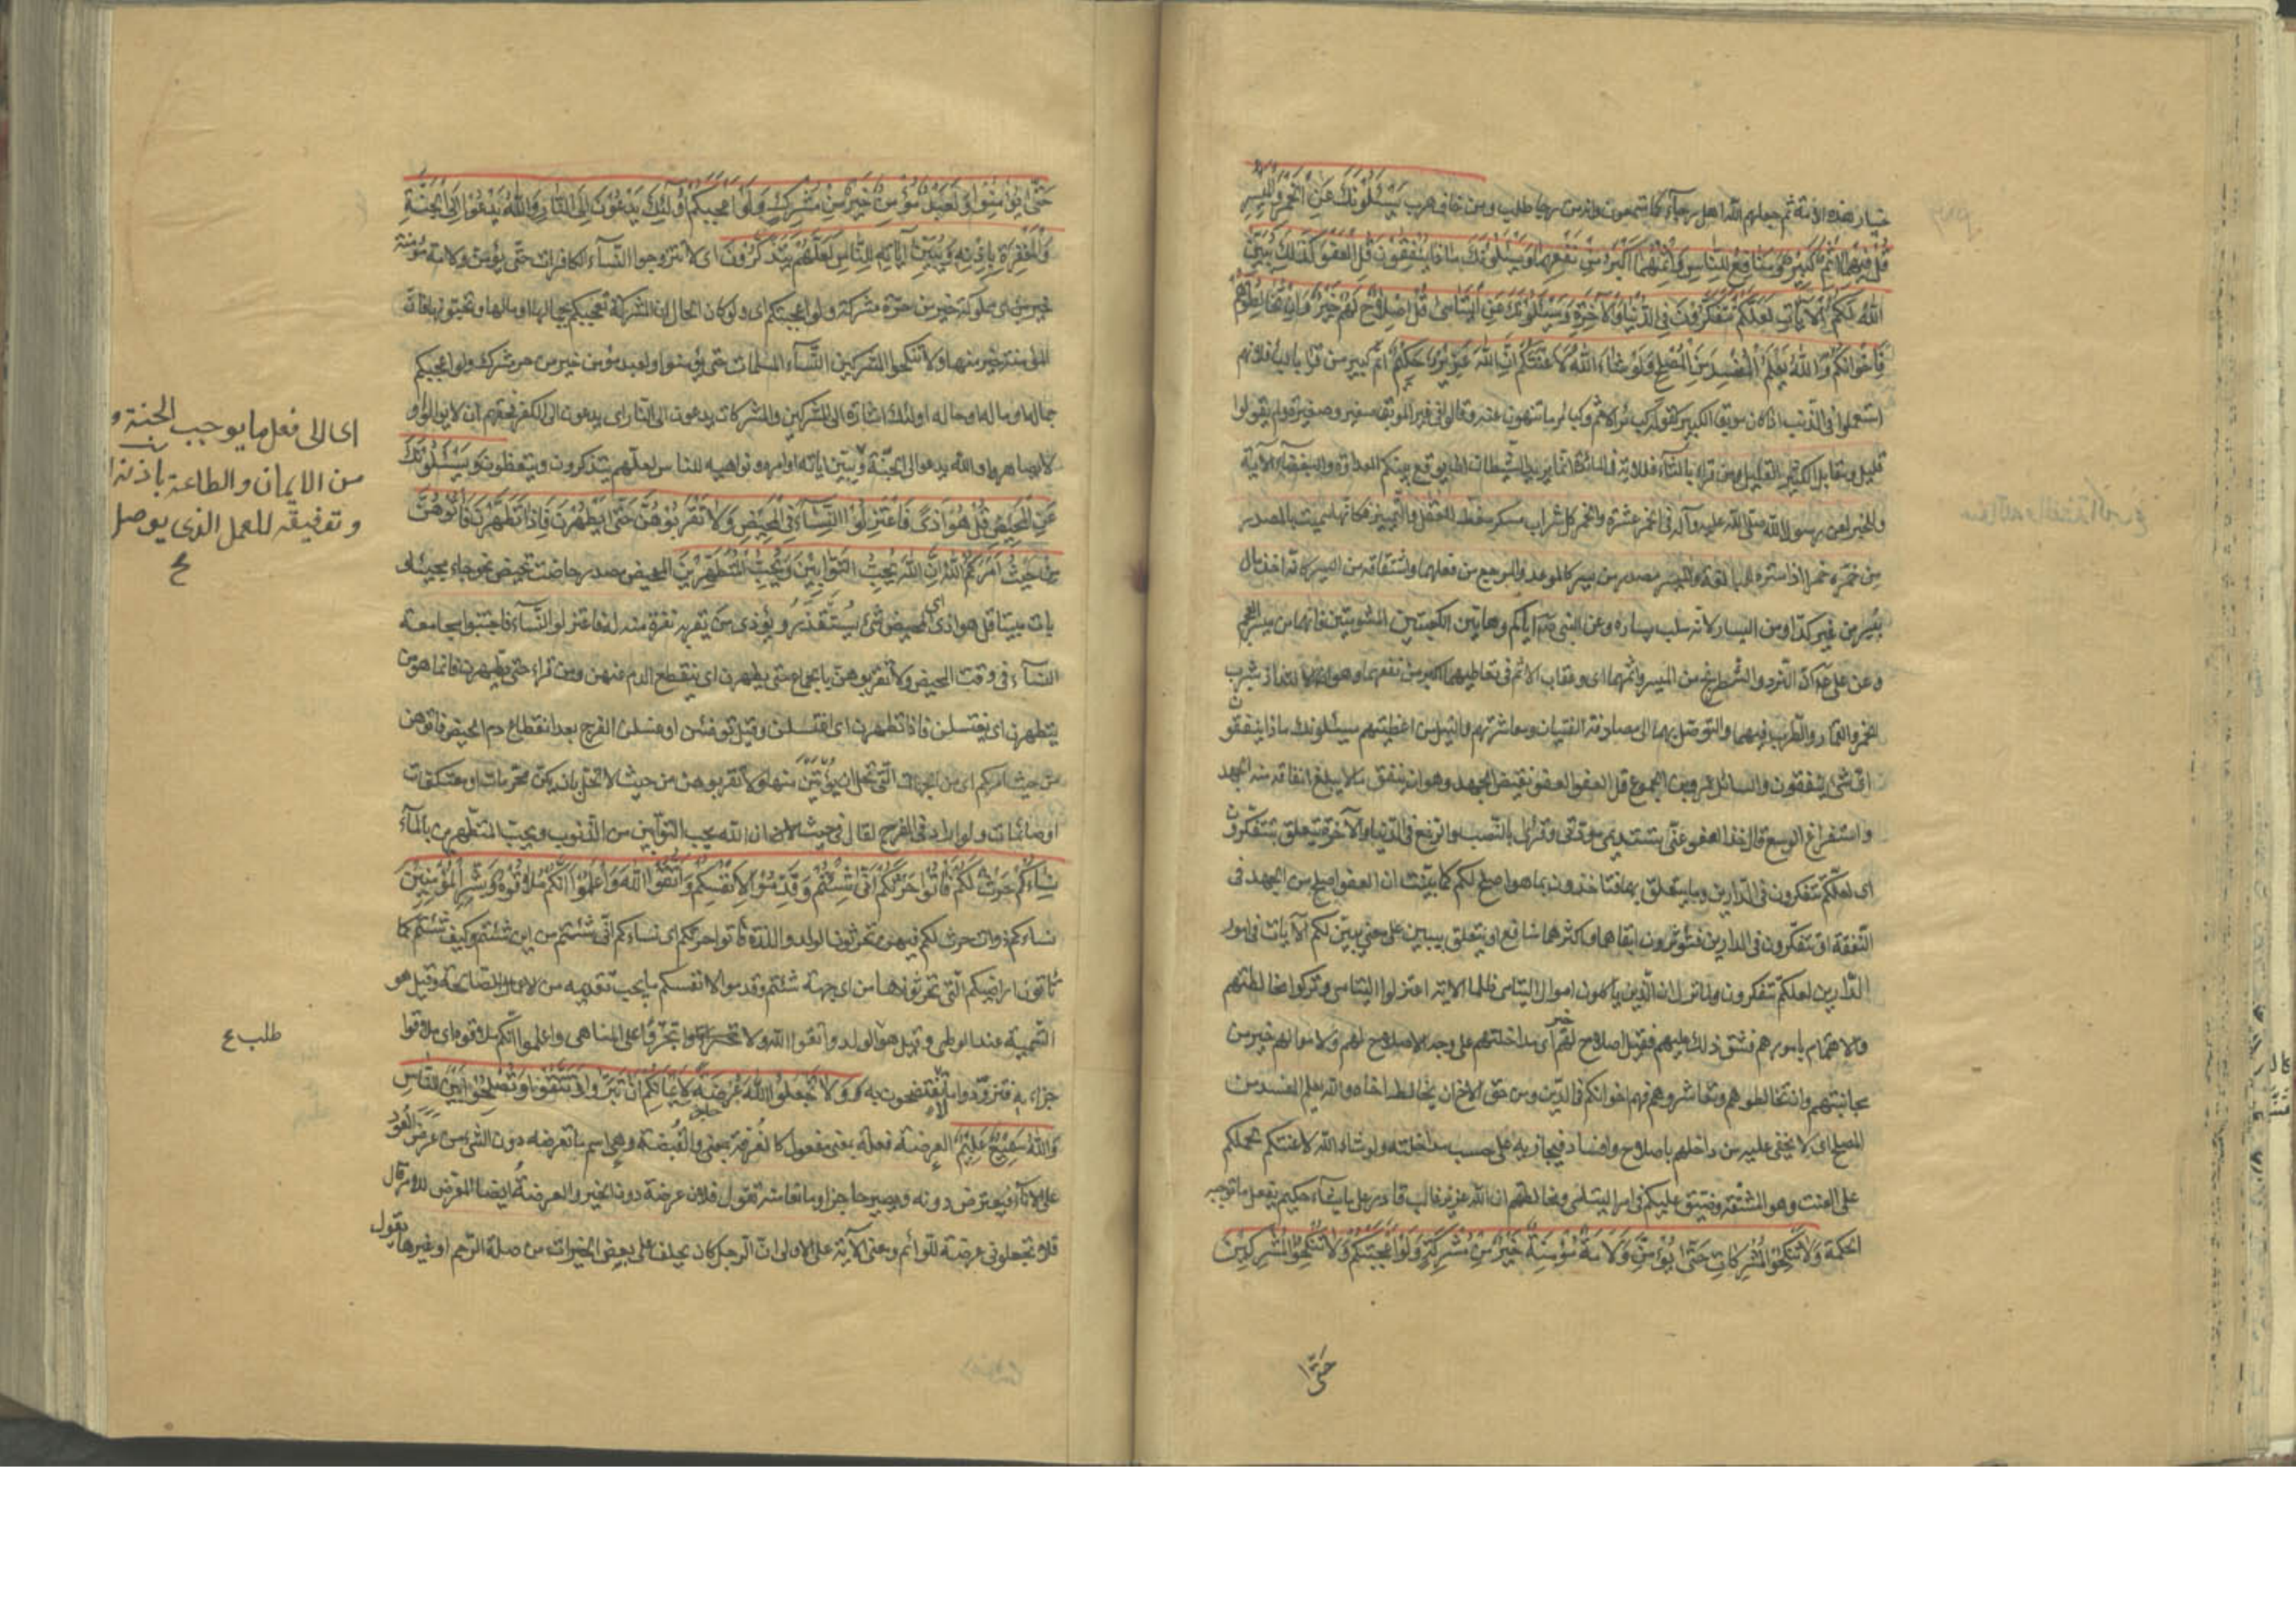 خيار هذه الأمة ثم جعلهم الله اهل رجاء كما تسمعون وانه من رجا طلب ومن خاف هرب يَسْئَلُونَكَ عَنِ الْخَمْرِ وَالْمَيْسِرِ
قُلْ فِيهِمَا اِثْمٌ كَبِيرٌ وَمَنَافِعُ لِلنَّاسِ وَاِثْمُهُمَا اَكْبَرُ مِنْ نَفْعِهِمَا وَيَسْئَلُونَكَ مَاذَا يُنْفِقُونَ قُلِ الْعَفْوَ كَذٰلِكَ يُبَيِّنُ
اللهُ لَكُمُ الْآيَاتِ لَعَلَّكُمْ تَتَفَكَّرُونَ فِي الدُّنْيَا وَالْآخِرَةِ وَيَسْئَلُونَكَ عَنِ الْيَتَامىٰ قُلْ اِصْلَاحٌ لَهُمْ خَيْرٌ وَاِنْ تُخَالِطُوهُمْ
فَاِخْوَانُكُمْ وَاللهُ يَعْلَمُ الْمُفْسِدَ مِنَ الْمُصْلِحِ وَلَوْ شَاءَ اللهُ لَاَعْنَتَكُمْ اِنَّ اللهَ عَزِيزٌ حَكِيمٌ اثم كبير من قرأ بالباء فلانهم
استعملوا فى الذنب اذا كان موبقا الكبير كقوله كبائر الاثم وكبائر ما تنهون عنه وقالوا فى غير الموبق صغير وصغيرة ولم يقولوا
قليل ومقابل الكثير القليل ومن قرأ بالثاء فلانه فى المائدة انما يريد الشيطان ان يوقع بينكم العداوة والبغضاء الاية
ولعن رسول الله صلى الله عليه وآله فى الخمر عشرة والخمر كل شراب مسكر مغطّ للعقل والتمييز فكانها سميت بالمصدر
من خمره خمرا اذا ستره للمبالغة والميسر مصدر من يسر كالموعد والمرجع من فعلهما واشتقاقه من اليسر كانه اخذ مال
بيسر من غير كدّ او من اليسار لانه سلب يساره وعن النبى اياكم وهاتين الكعبتين المشومتين فانهما من ميسر العجم
وعن على ان النرد والشطرنج من الميسر واثمهما اى وعقاب الاثم فى تعاطيهما اكبر من نفعهما وهو الالتذاذ بشرب
الخمر والقمار والطرب فيهما والتوصل بهما الى مصادقة الفتيان ومعاشرتهم والنيل من اعطيتهم يسئلونك ماذا ينفقون
اى شئ ينفقون والسائل عمرو بن الجموع قل العفو العفو نقيض الجهد وهو ان ينفق ما لا يبلغ انفاقه منه الجهد
واستفراغ الوسع قال خذ العفو منى تستديمى مودتى وقرئ بالنصب والرفع فى الدنيا والآخرة يتعلق بتتفكرون
اى لعلكم تتفكرون فى الدارين وما يتعلق بهما فتاخذون بما هو اصلح لكم كما بينت ان العفو اصلح من الجهد فى
النفقة او تتفكرون فى الدارين فتؤثرون ابقاهما واكثرهما منافع او يتعلق بيبين على معنى يبين لكم الآيات فى امور
الدارين لعلكم تتفكرون ولما نزل ان الذين ياكلون اموال اليتامى ظلما الاية اعتزلوا اليتامى وتركوا مخالطتهم
والاهتمام بامورهم فشق ذلك عليهم فقيل اصلاح لهم خير اى مداخلتهم على وجه الاصلاح لهم ولاموالهم خير من
مجانبتهم وان تخالطوهم وتعاشروهم فهم اخوانكم فى الدين ومن حق الاخ ان يخالط اخاه والله يعلم المفسد من
المصلح اى لا يخفى عليه من داخلهم باصلاح وافساد فيجازيه على حسب مداخلته ولو شاء الله لاعنتكم لحملكم
على العنت وهو المشقة وضيق عليكم فى امر اليتامى ومخالطتهم ان الله عزيز غالب قادر على ما يشاء حكيم يفعل ما توجبه
الحكمة وَلَا تَنْكِحُوا الْمُشْرِكَاتِ حَتّىٰ يُؤْمِنَّ وَلَاَمَةٌ مُؤْمِنَةٌ خَيْرٌ مِنْ مُشْرِكَةٍ وَلَوْ اَعْجَبَتْكُمْ وَلَا تُنْكِحُوا الْمُشْرِكِينَ
حَتّى
حَتّىٰ يُؤْمِنُوا وَلَعَبْدٌ مُؤْمِنٌ خَيْرٌ مِنْ مُشْرِكٍ وَلَوْ اَعْجَبَكُمْ اُولٰئِكَ يَدْعُونَ اِلَى النَّارِ وَاللهُ يَدْعُوا اِلَى الْجَنَّةِ
وَالْمَغْفِرَةِ بِاِذْنِهِ وَيُبَيِّنُ آيَاتِهِ لِلنَّاسِ لَعَلَّهُمْ يَتَذَكَّرُونَ اى لا تتزوجوا النساء الكافرات حتى يؤمن ولامة مؤمنة
خير من اى مملوكة خير من حرة مشركة ولو اعجبتكم اى ولو كان الحال ان المشركة تعجبكم بجمالها او مالها وتحبونها فان
المؤمنة خير منها ولا تنكحوا المشركين النساء المسلمات حتى يؤمنوا ولعبد مؤمن خير من حر مشرك ولو اعجبكم
جماله او ماله او حاله اولئك اشارة الى المشركين والمشركات يدعون الى النار اى يدعون الى الكفر فحقهم ان لا يوالوا و
لا يصاهروا والله يدعو الى الجنة ويبين اياته اوامره ونواهيه للناس لعلهم يتذكرون ويتعظون وَيَسْئَلُونَكَ
عَنِ الْمَحِيضِ قُلْ هُوَ اَذىً فَاعْتَزِلُوا النِّسَاءَ فِي الْمَحِيضِ وَلَا تَقْرَبُوهُنَّ حَتّىٰ يَطْهُرْنَ فَاِذَا تَطَهَّرْنَ فَأْتُوهُنَّ
مِنْ حَيْثُ اَمَرَكُمُ اللهُ اِنَّ اللهَ يُحِبُّ التَّوَّابِينَ وَيُحِبُّ الْمُتَطَهِّرِينَ المحيض مصدر حاضت تحيض نحو جاء مجيئا و
بات مبيتا قل هو اذى اى المحيض شئ يستقذر ويؤذى من يقربه نفرة منه له فاعتزلوا النساء فاجتنبوا مجامعة
النساء فى وقت المحيض ولا تقربوهن بالجماع حتى يطهرن اى ينقطع الدم منهن ومن قرأ حتى يطهرن فانما هو من
يتطهرن اى يغتسلن فاذا تطهرن اى اغتسلن وقيل توضئن او غسلن الفرج بعد انقطاع دم الحيض فاتوهن
من حيث امركم اى من الجهات التى تحل ان يؤتين منها ولا تقربوهن من حيث لا تحل بان يكن محرمات او معتكفات
او صائمات ولو اراد فى الفرج لقال فى حيث ان الله يحب التوابين من الذنوب ويحب المتطهرين بالماء
نِسَاؤُكُمْ حَرْثٌ لَكُمْ فَأْتُوا حَرْثَكُمْ اَنّىٰ شِئْتُمْ وَقَدِّمُوا لِاَنْفُسِكُمْ وَاتَّقُوا اللهَ وَاعْلَمُوا اَنَّكُمْ مُلَاقُوهُ وَبَشِّرِ الْمُؤْمِنِينَ
نساءكم ذوات حرث لكم فيهن تحرثون الولد واللذة فاتوا حرثكم اى نساءكم انى شئتم من اين شئتم وكيف شئتم كما
تأتون اراضيكم التى تحرثونها من اى جهة شئتم وقدموا لانفسكم ما يجب تقديمه من الاعمال الصالحة وقيل هو
التسمية عند الوطى وقيل هو الولد واتقوا الله ولا تجترؤا على المناهى واعلموا انكم ملاقوه اى ملاقوا
جزاءه فتزودوا ما لا تفتضحون به وَلَا تَجْعَلُوا اللهَ عُرْضَةً لِاَيْمَانِكُمْ اَنْ تَبَرُّوا وَتَتَّقُوا وَتُصْلِحُوا بَيْنَ النَّاسِ
وَاللهُ سَمِيعٌ عَلِيمٌ العرضة فعلة بمعنى مفعول كالغرفة والقبضة وهى اسم ما تعرضه دون الشئ من عرض العود
على الاناء فيعترض دونه ويصير حاجزا ومانعا منه تقول فلان عرضة دون الخير والعرضة ايضا المعرض للامر قال
فلا تجعلونى عرضة للوائم ومعنى الآية على الاولى ان الرجل كان يحلف على بعض الخيرات من صلة الرحم او غيرها يقول
اى الى فعل ما يوجب الجنة و
من الايمان والطاعة باذنه
وتوفيقه للعمل الذى يوصل
ع
طلب ع